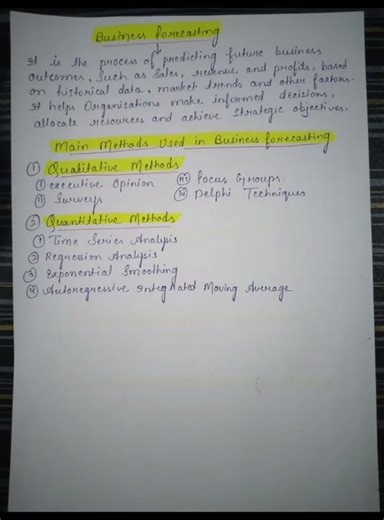 Business forecasting
It is the process of predicting future business
outcomes, Such as Sales, revenue and profits, based
on historical data, market trends and other factors.
It helps Organisations make informed decisions,
allocate resources and achieve Strategic objectives.
Main Methods Used in Business forecasting
① Qualitative Methods
(i) executive Opinion (iii) focus Groups
(ii) Surveys (iv) Delphi Techniques
② Quantitative Methods
① Time Series Analysis
② Regression Analysis
③ Exponential Smoothing
④ Autoregressive Integrated Moving Average